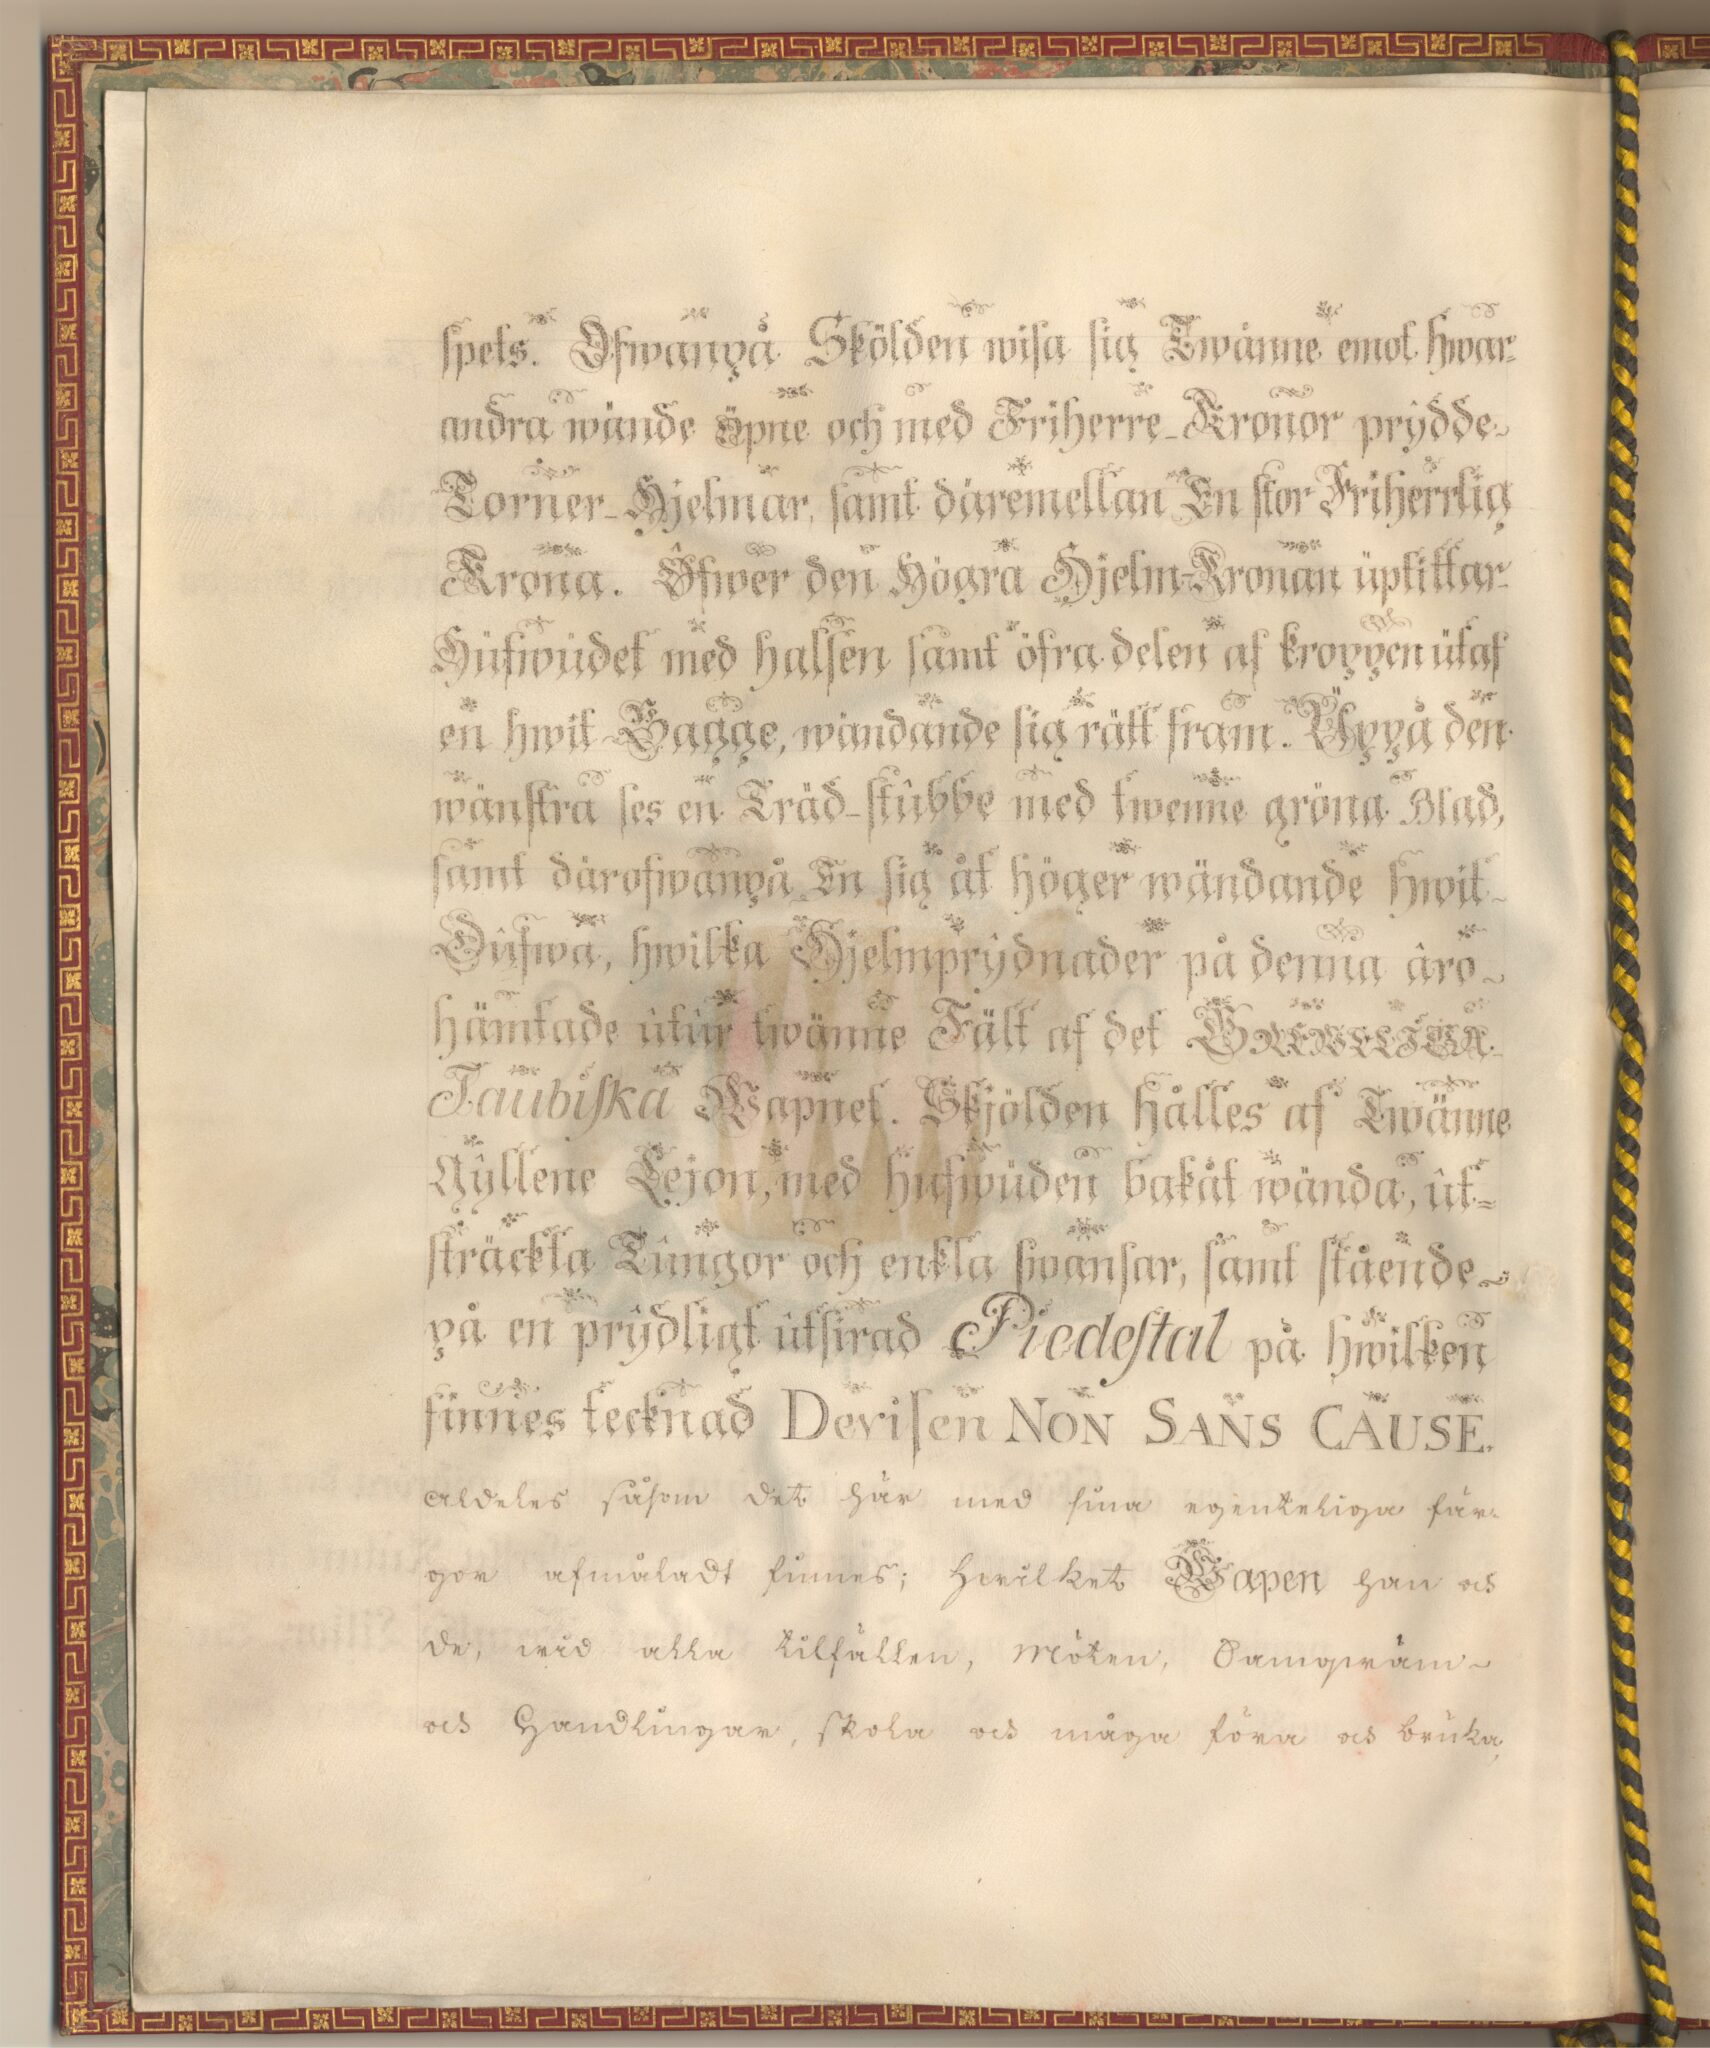 spets. Ofwanpå Skölden wisa sig Twänne emot hwar-
andra wände öpne och med Friherre-Kronor prydde
Torner-Hjelmar, samt däremellan En stor Friherrlig
Krona. Öfwer den Högra Hjelm-Kronan uptittar
Hufwudet med halsen samt öfra delen af kroppen utaf
en hwit Bagge, wändande sig rätt fram. Uppå den
wänstra ses en Träd-stubbe med twenne gröna Blad,
samt därofwanpå En sig åt höger wändande hwit
Dufwa, hwilka Hjelmprydnader på denna äro
hämtade utur twänne Fält af det GREWELIGA
Taubiska Wapnet. Skjölden hålles af Twänne
Gyllene Lejon, med hufwuden bakåt wända, ut-
sträckta Tungor och enkla swansar, samt stående
på en prydligt utsirad Piedestal på hwilken
finnes tecknad Devisen NON SANS CAUSE.
Aldeles såsom det här med sina egenteliga fär-
gor afmåladt finnes; Hwilket Wapen han och
de, wid alla tilfällen, Möten, Samqwäm
och Handlingar, skola och måga föra och bruka,